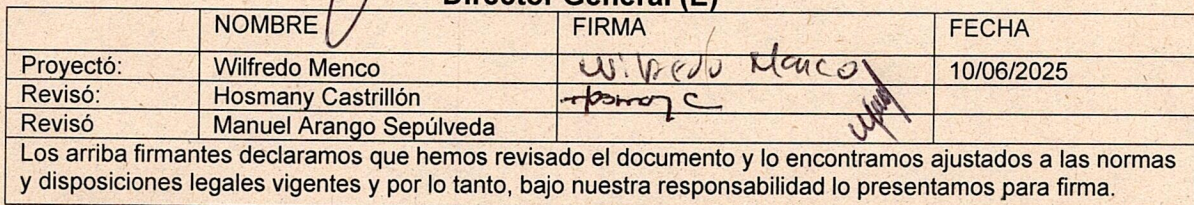 Director General (E)
NOMBRE FIRMA FECHA
Proyectó: Wilfredo Menco Wilfredo Menco 10/06/2025
Revisó: Hosmany Castrillón
Revisó Manuel Arango Sepúlveda
Los arriba firmantes declaramos que hemos revisado el documento y lo encontramos ajustados a las normas
y disposiciones legales vigentes y por lo tanto, bajo nuestra responsabilidad lo presentamos para firma.